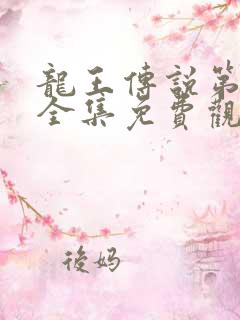 龍王傳說第
全集免費觀
後妈